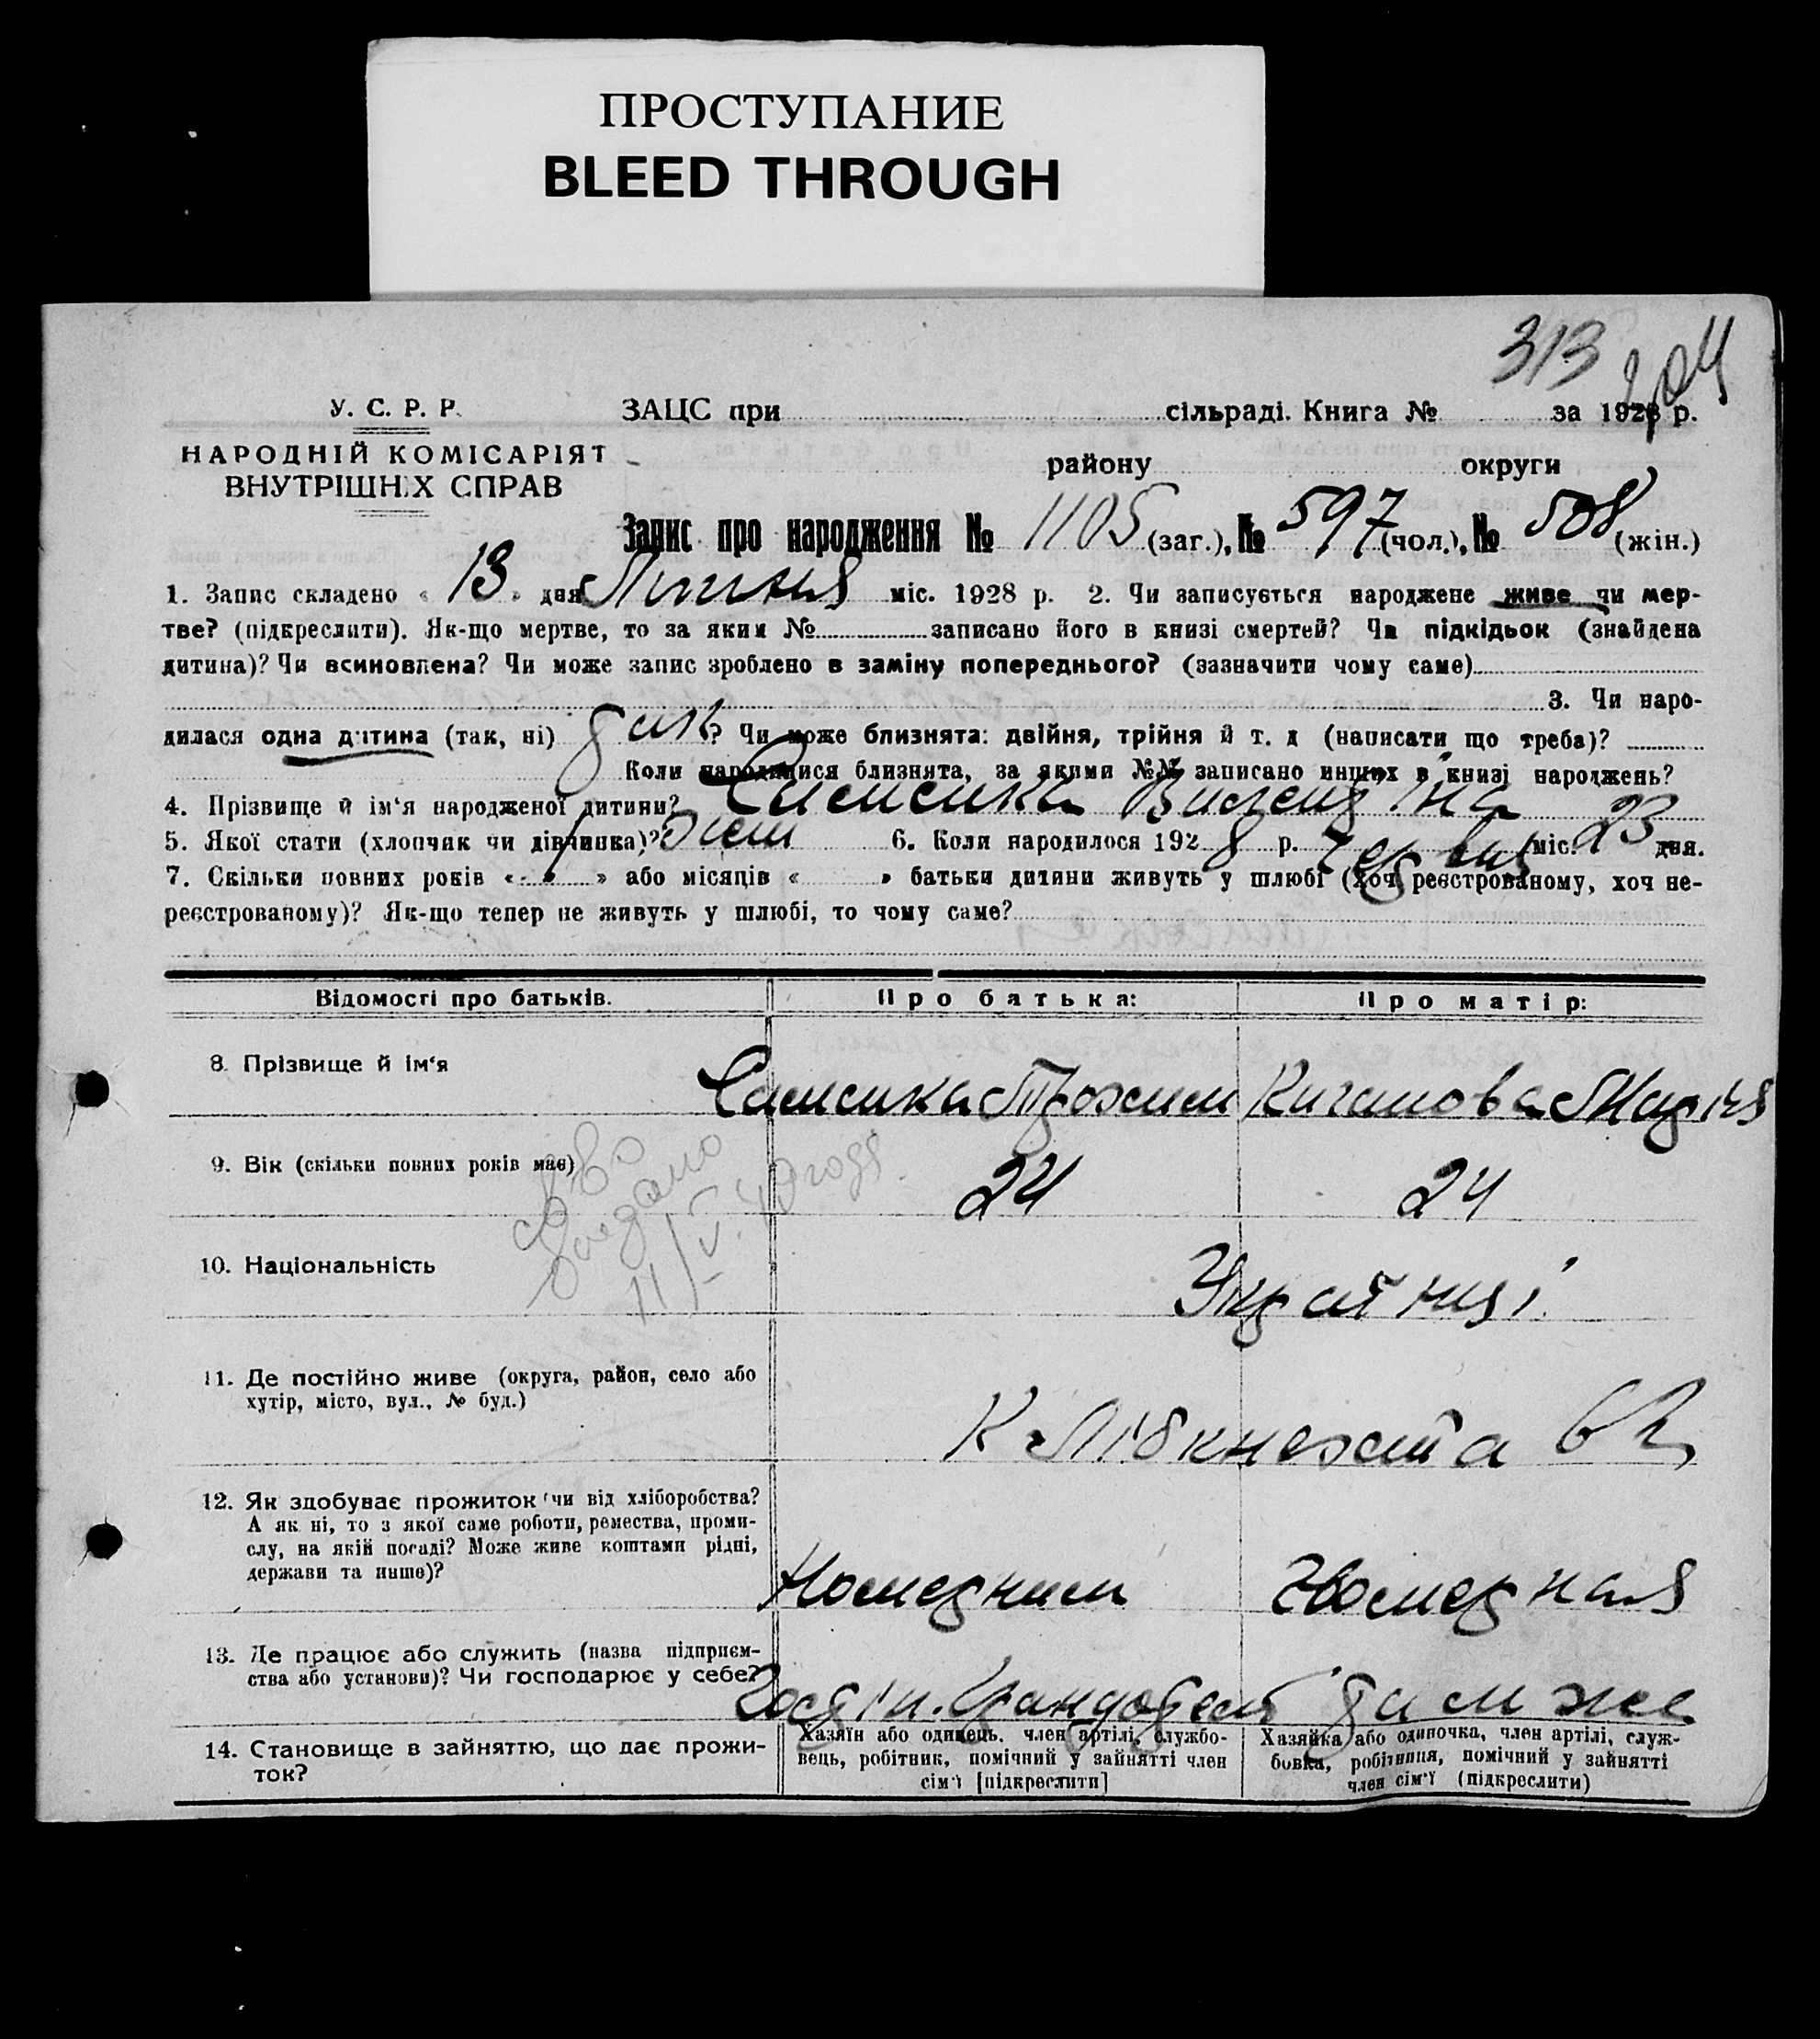 ПРОСТУПАНИЕ
BLEED THROUGH
313
204
У. С. Р. Р.
ЗАЦС при сільраді. Книга № за 1928 р.
НАРОДНІЙ КОМІСАРІЯТ
ВНУТРІШНІХ СПРАВ
району округи
Запис про народження № 1105 (заг.), № 597 (чол.), № 508 (жін.)
1. Запис складено « 13 » дня Липня міс. 1928 р. 2. Чи записується народжене живе чи мер-
тве? (підкреслити). Як-що мертве, то за яким № записано його в книзі смертей? Чи підкідьок (знайдена
дитина)? Чи всиновлена? Чи може запис зроблено в заміну попереднього? (зазначити чому саме)
3. Чи наро-
дилася одна дитина (так, ні) ? Чи може близнята: двійня, трійня й т. д (написати що треба)?
Коли народилися близнята, за якими №№ записано инших в книзі народжень?
4. Прізвище й ім'я народженої дитини?
5. Якої стати (хлопчик чи дівчинка)? Жен 6. Коли народилося 1928 р. Червня міс. 23 дня.
7. Скільки повних років « » або місяців « » батьки дитини живуть у шлюбі (хоч реєстрованому, хоч не-
реєстрованому)? Як-що тепер не живуть у шлюбі, то чому саме?
Відомості про батьків. Про батька: Про матір:
8. Прізвище й ім'я
Трохим Марія
9. Вік (скільки повних років має) 24 24
св-во
10. Національність Українці
11. Де постійно живе (округа, район, село або
хутір, місто, вул., № буд.)
К Лібкнехта 62
12. Як здобуває прожиток (чи від хліборобства?
А як ні, то з якої саме роботи, ремества, проми-
слу, на якій посаді? Може живе коштами рідні,
держави та инше)?
Номерним Номерная
13. Де працює або служить (назва підприєм-
ства або установи)? Чи господарює у себе?
там же
14. Становище в зайняттю, що дає прожи-
ток?
Хазяїн або одинець, член артілі, службо-
вець, робітник, помічний у зайнятті член
сім'ї [підкреслити]
Хазяйка або одиночка, член артілі, служ-
бовка, робітниця, помічний у зайнятті
член сім'ї (підкреслити)